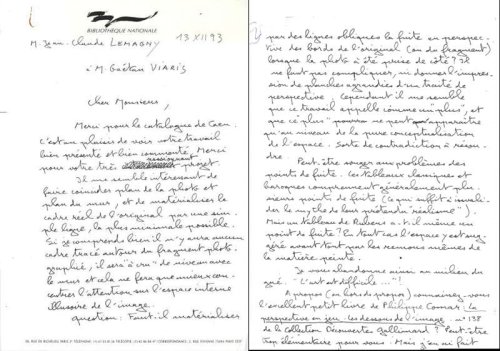 BIBLIOTHÈQUE NATIONALE
M. Jean-Claude LEMAGNY
13 XII 93
à M. Gaëtan VIARIS
Cher Monsieur,
Merci pour le catalogue de Caen.
C'est un plaisir de voir votre travail
bien présenté et bien commenté. Merci
pour votre très intéressant projet
Il me semble intéressant de
faire coïncider plan de la photo et
plan du mur, et de matérialiser le
cadre réel de l'original par une sim-
ple ligne, la plus minimale possible.
Si je comprends bien il n'y aura aucun
cadre tracé autour du fragment photo-
graphié, il sera à cru de niveau avec
le mur et cela ne fera que mieux con-
centrer l'attention sur l'espace interne
illusoire de l'image.
question : Faut-il matérialiser
par des lignes obliques la fuite en perspec-
tive des bords de l'original (ou du fragment)
lorsque la photo a été prise de côté ? Il
ne faut pas compliquer, ni donner l'impres-
sion de planches agrandies d'un traité de
perspective. Cependant il me semble
que ce travail appelle comme un "plus", et
que ce "plus" pourrait ne peut apparaître
qu'au niveau de la pure conceptualisation
de l'espace. Sorte de contradiction à résou-
dre
Peut-être songer aux problèmes des
points de fuite. (Les tableaux classiques et
baroques comprennent généralement plu-
sieurs points de fuite (ce qui suffit à invali-
der le mythe de leur prétendu réalisme").
Mais un tableau de Rubens a-t-il même un
point de fuite ? En tout cas l'espace y est sug-
géré avant tout par les remous mêmes de
la matière peinte.
Je vous abandonne ainsi au milieu du
gué. "L'art est difficile..."!
A propos (ou hors de propos) connaissez-vous
l'excellent petit livre de Philippe Comar : La
perspective en jeu. Les dessous de l'image. n° 138
de la Collection Découvertes Gallimard ? Peut-être
trop élémentaire pour vous. Mais j'en ai fait